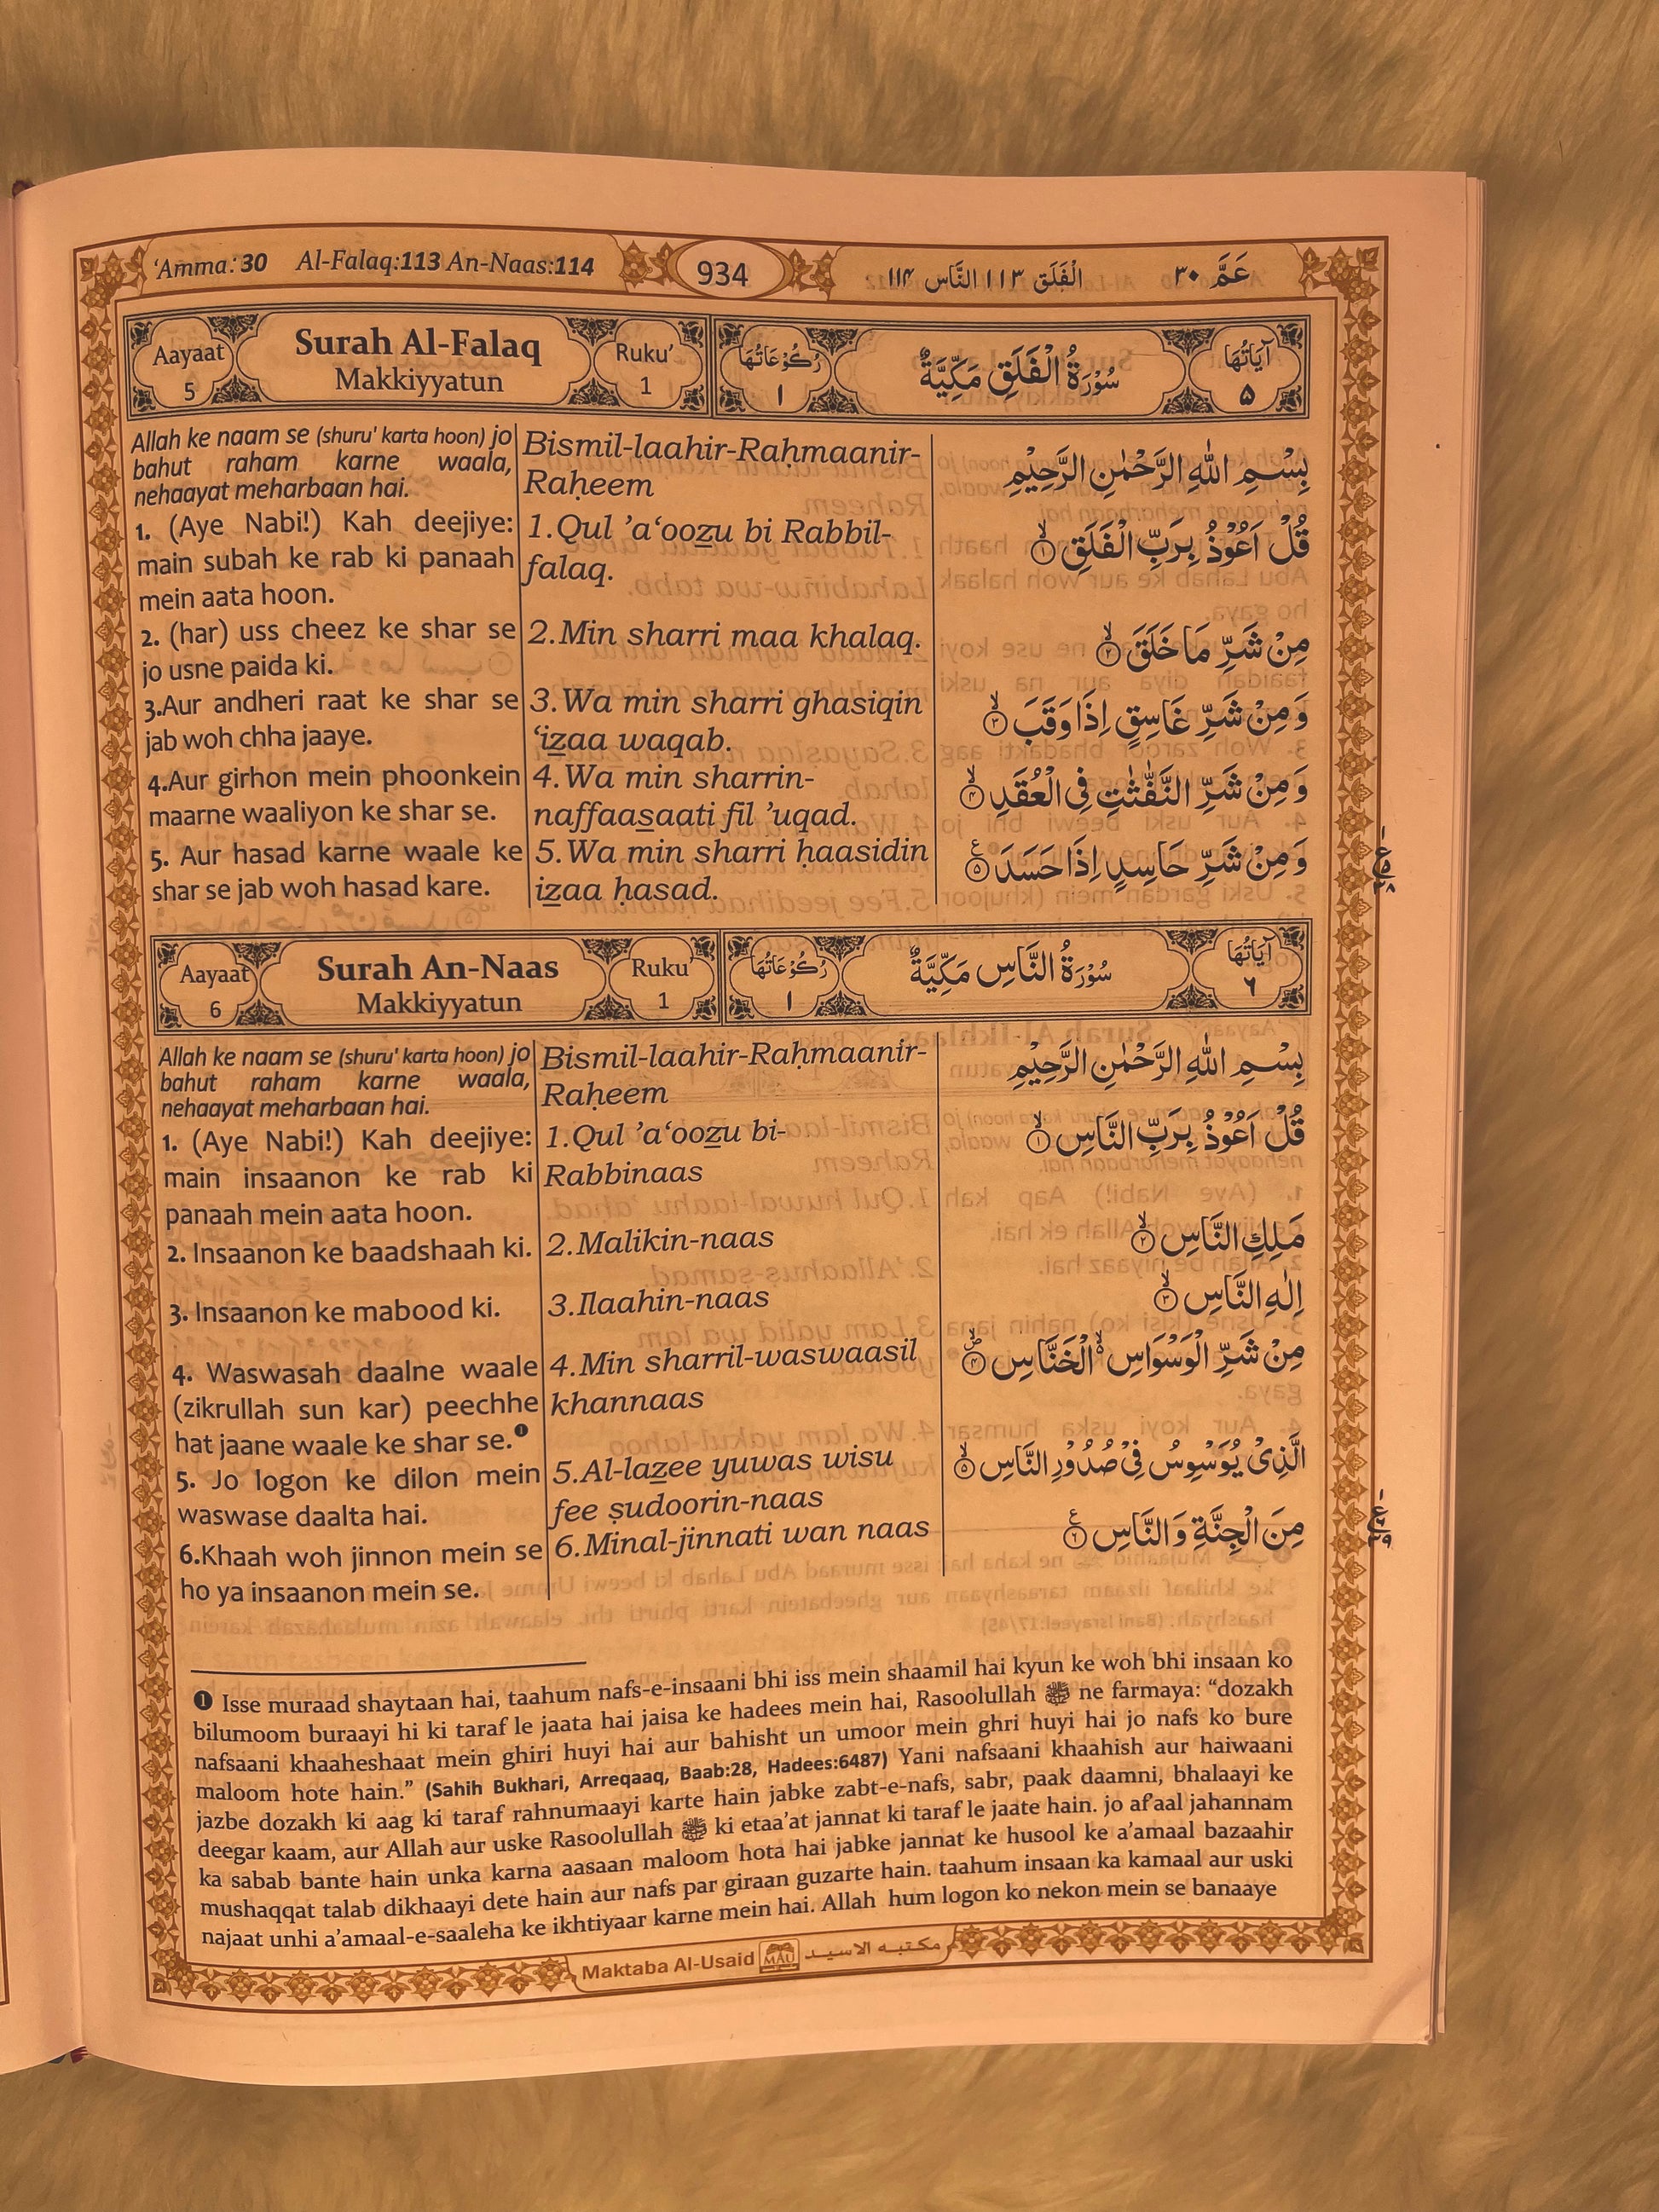 'Amma: 30 Al-Falaq:113 An-Naas:114
934
الْفَلَق ١١٣ النَّاس ١١٤
عَمَّ ٣٠
Aayaat
5
Surah Al-Falaq
Makkiyyatun
Ruku'
1
رُكُوْعَاتُهَا
١
سُوْرَةُ الْفَلَقِ مَكِّيَّةٌ
آيَاتُهَا
۵
Allah ke naam se (shuru' karta hoon) jo
bahut raham karne waala,
nehaayat meharbaan hai.
1. (Aye Nabi!) Kah deejiye:
main subah ke rab ki panaah
mein aata hoon.
2. (har) uss cheez ke shar se
jo usne paida ki.
3.Aur andheri raat ke shar se
jab woh chha jaaye.
4.Aur girhon mein phoonkein
maarne waaliyon ke shar se.
5. Aur hasad karne waale ke
shar se jab woh hasad kare.
Bismil-laahir-Raḥmaanir-
Raḥeem
1.Qul ’a‘ooz̲u bi Rabbil-
falaq.
2.Min sharri maa khalaq.
3.Wa min sharri ghasiqin
‘iz̲aa waqab.
4.Wa min sharrin-
naffaas̲aati fil ’uqad.
5.Wa min sharri ḥaasidin
iz̲aa ḥasad.
بِسْمِ اللهِ الرَّحْمٰنِ الرَّحِيْمِ
قُلْ اَعُوْذُ بِرَبِّ الْفَلَقِ ۙ۝١
مِنْ شَرِّ مَا خَلَقَ ۙ۝٢
وَمِنْ شَرِّ غَاسِقٍ اِذَا وَقَبَ ۙ۝٣
وَمِنْ شَرِّ النَّفّٰثٰتِ فِي الْعُقَدِ ۙ۝۴
وَمِنْ شَرِّ حَاسِدٍ اِذَا حَسَدَ ۝۵
Aayaat
6
Surah An-Naas
Makkiyyatun
Ruku'
1
رُكُوْعَاتُهَا
١
سُوْرَةُ النَّاسِ مَكِّيَّةٌ
آيَاتُهَا
٦
Allah ke naam se (shuru' karta hoon) jo
bahut raham karne waala,
nehaayat meharbaan hai.
1. (Aye Nabi!) Kah deejiye:
main insaanon ke rab ki
panaah mein aata hoon.
2. Insaanon ke baadshaah ki.
3. Insaanon ke mabood ki.
4. Waswasah daalne waale
(zikrullah sun kar) peechhe
hat jaane waale ke shar se.❶
5. Jo logon ke dilon mein
waswase daalta hai.
6.Khaah woh jinnon mein se
ho ya insaanon mein se.
Bismil-laahir-Raḥmaanir-
Raḥeem
1.Qul ’a‘ooz̲u bi-
Rabbinaas
2.Malikin-naas
3.Ilaahin-naas
4.Min sharril-waswaasil
khannaas
5.Al-laz̲ee yuwas wisu
fee ṣudoorin-naas
6.Minal-jinnati wan naas
بِسْمِ اللهِ الرَّحْمٰنِ الرَّحِيْمِ
قُلْ اَعُوْذُ بِرَبِّ النَّاسِ ۙ۝١
مَلِكِ النَّاسِ ۙ۝٢
اِلٰهِ النَّاسِ ۙ۝٣
مِنْ شَرِّ الْوَسْوَاسِ ۙ الْخَنَّاسِ ۝۴
الَّذِيْ يُوَسْوِسُ فِيْ صُدُوْرِ النَّاسِ ۙ۝۵
مِنَ الْجِنَّةِ وَالنَّاسِ ۝٦
❶ Isse muraad shaytaan hai, taahum nafs-e-insaani bhi iss mein shaamil hai kyun ke woh bhi insaan ko
bilumoom buraayi hi ki taraf le jaata hai jaisa ke hadees mein hai, Rasoolullah ﷺ ne farmaya: “dozakh
nafsaani khaaheshaat mein ghiri huyi hai aur bahisht un umoor mein ghri huyi hai jo nafs ko bure
maloom hote hain.” (Sahih Bukhari, Arreqaaq, Baab:28, Hadees:6487) Yani nafsaani khaahish aur haiwaani
jazbe dozakh ki aag ki taraf rahnumaayi karte hain jabke zabt-e-nafs, sabr, paak daamni, bhalaayi ke
deegar kaam, aur Allah aur uske Rasoolullah ﷺ ki etaa'at jannat ki taraf le jaate hain. jo af'aal jahannam
ka sabab bante hain unka karna aasaan maloom hota hai jabke jannat ke husool ke a'amaal bazaahir
mushaqqat talab dikhaayi dete hain aur nafs par giraan guzarte hain. taahum insaan ka kamaal aur uski
najaat unhi a'amaal-e-saaleha ke ikhtiyaar karne mein hai. Allah hum logon ko nekon mein se banaaye
Maktaba Al-Usaid MAU مكتبه الاسيد